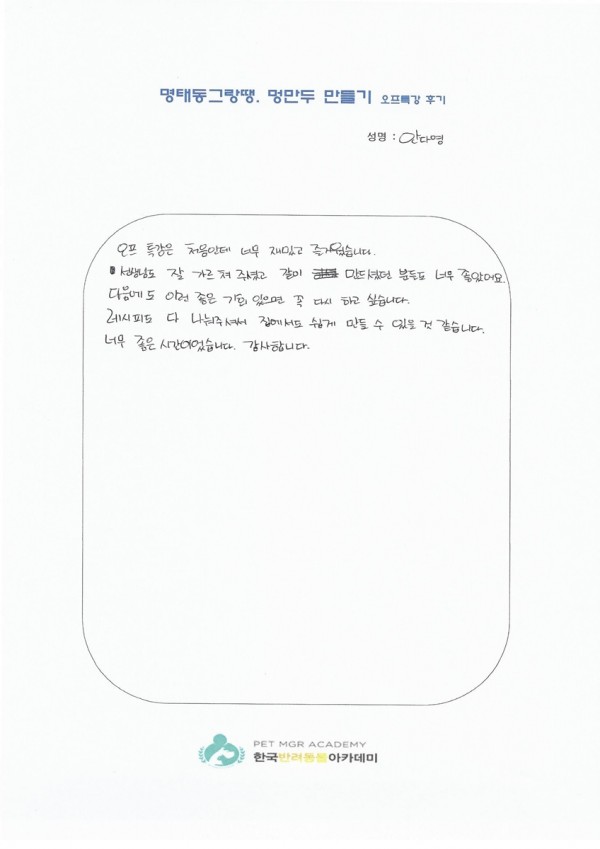 명태동그랑땡. 멍만두 만들기 오프특강 후기
성명 : 안다영
오프 특강은 처음인데 너무 재밌고 즐거웠습니다.
선생님도 잘 가르쳐 주셨고 같이 만드셨던 분들도 너무 좋았어요.
다음에도 이런 좋은 기회 있으면 꼭 다시 하고 싶습니다.
레시피도 다 나눠주셔서 집에서도 쉽게 만들 수 있을 것 같습니다.
너무 좋은 시간이었습니다. 감사합니다.
PET MGR ACADEMY
한국반려동물아카데미